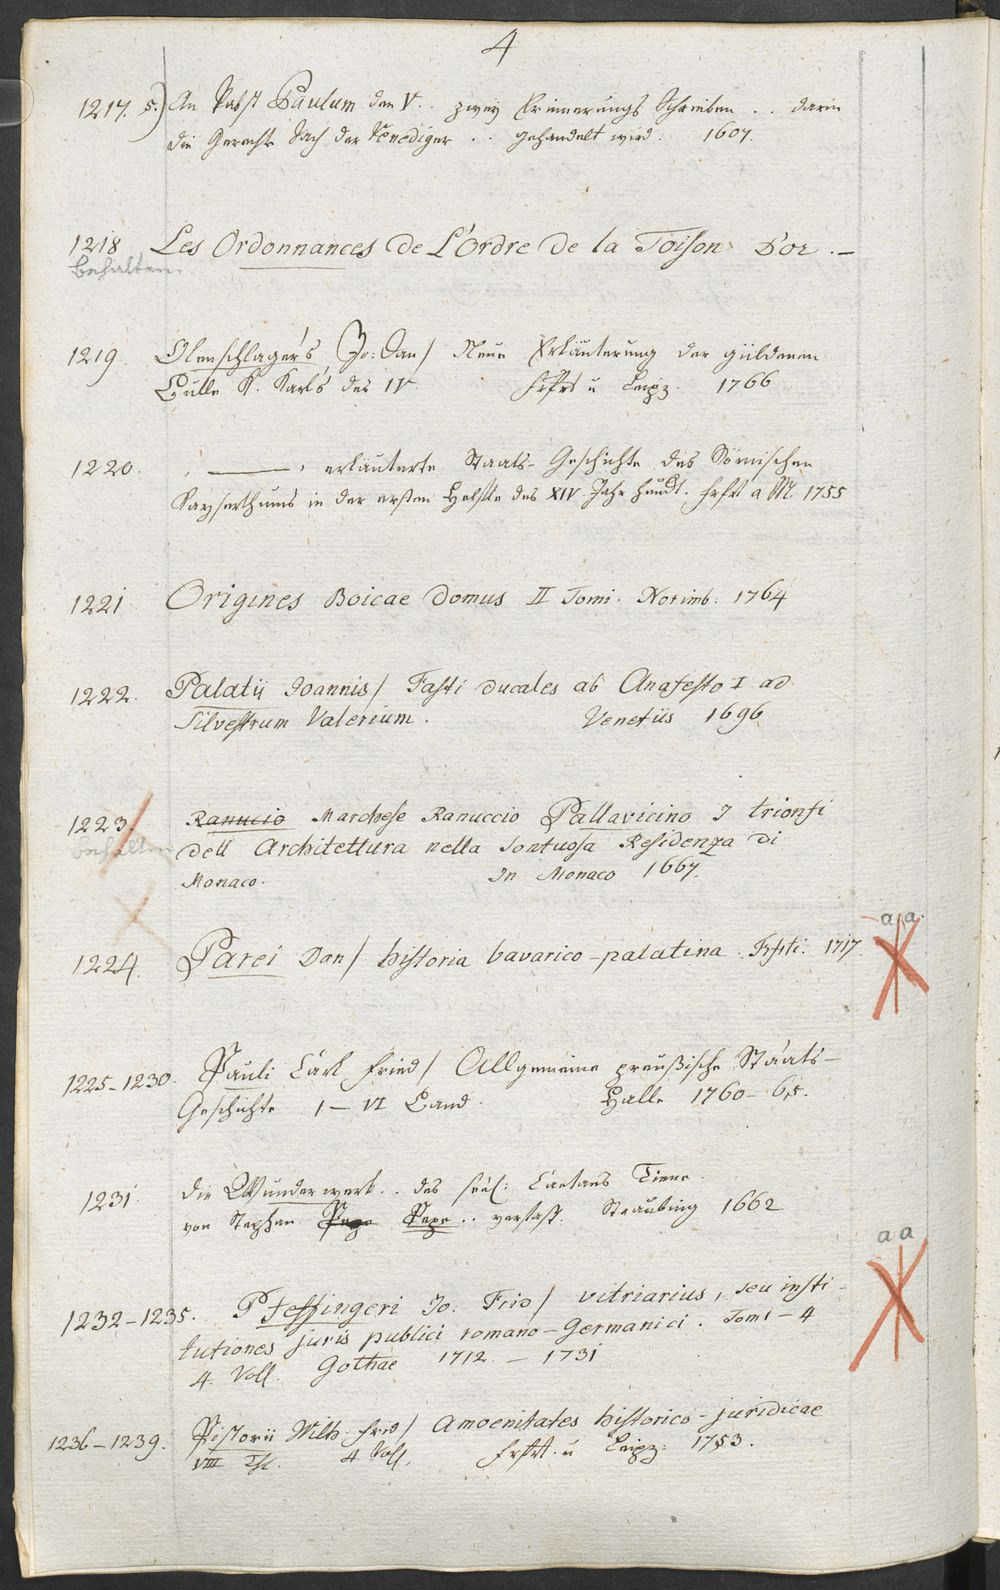 4
1217. 5.) An Pabst Paulum den V. . zwey Erinnerungs Schreiben . . darin
die Gerechte Sach der Venediger . . gehandelt wird. 1607.
1218 Les Ordonnances de L'Ordre de la Toison D'or . –
behalten
1219. Olenschlager's Jo: Dan/ Neue Erläuterung der güldenen
Bulle K. Karls des IV Frfrt u Leipz. 1766
1220. ——— , erläuterte Staats-Geschichte des Römischen
Kayserthums in der ersten Helfte des XIV Jahr hundt. Frfrt a M. 1755
1221 Origines Boicae Domus II Tomi. Norimb: 1764
1222. Palatii Joannis/ Fasti ducales ab Anafesto I ad
Silvestrum Valerium. Venetiis 1696
1223. Ranucio Marchese Ranuccio Pallavicino J trionfi
behalten
dell Architettura nella sontuosa Residenza di
Monaco. In Monaco 1667.
a a.
1224 Parei Dan/ historia bavarico-palatina. Frfti. 1717.
1225-1230. Pauli Carl Fried/ Allgemeine preußische Staats-
Geschichte 1 – VI Band. Halle 1760-65.
1231 Die Wunderwerk . . des seel: Caetans Tiene.
von Stephan Pepe . . verfast. Straubing 1662
a a
1232-1235. Pfeffingeri Jo: Frid/ vitriarius, seu insti-
tutiones juris publici romano-Germanici. Tom 1 – 4
4. Voll. Gothae 1712 – 1731
1236-1239. Pistorii Wilh: Fried/ Amoenitates historico-juridicae
VIII Thl. 4 Voll. Frfrt. u Leipz: 1753.